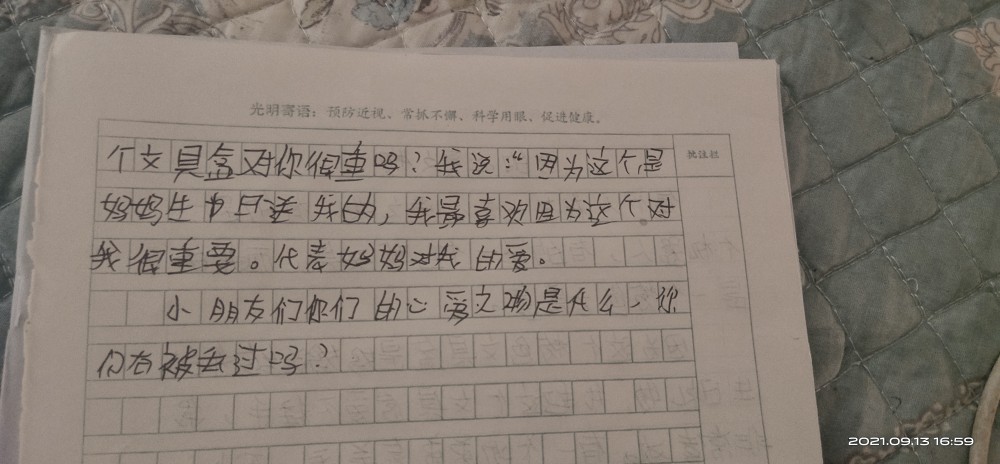 光明寄语：预防近视、常抓不懈、科学用眼、促进健康。
批注栏
个文具盒对你很重吗？我说：“因为这个是
妈妈生日送我的，我最喜欢因为这个对
我很重要。代表妈妈对我的爱。
小朋友们你们的心爱之物是什么、你
们有被丢过吗？
2021.09.13 16:59